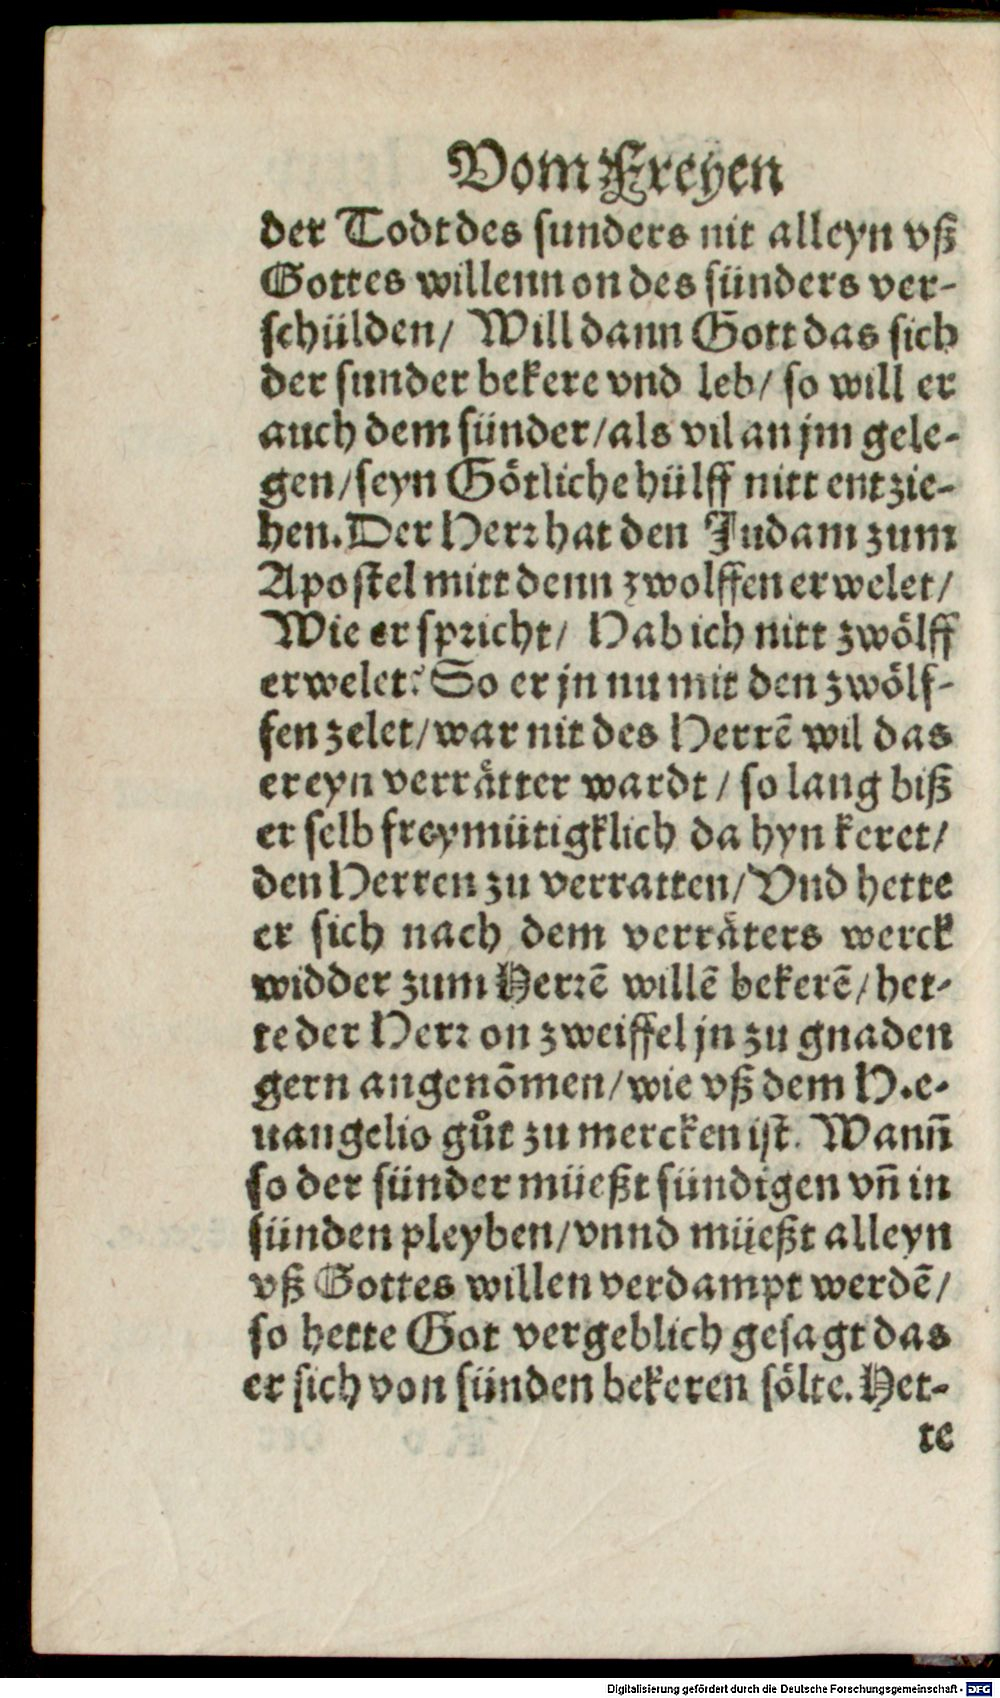 Vom Freyen
der Todt des sunders nit alleyn vß
Gottes willenn on des sünders ver-
schülden/ Will dann Gott das sich
der sunder bekere vnd leb/ so will er
auch dem sünder/als vil an jm gele-
gen/seyn Götliche hülff nitt entzie-
hen. Der Herr hat den Judam zum
Apostel mitt denn zwolffen erwelet/
Wie er spricht/ Hab ich nitt zwölff
erwelet? So er jn nu mit den zwölf-
fen zelet/war nit des Herrē wil das
er eyn verrätter wardt / so lang biß
er selb freymütigklich da hyn keret/
den Herren zu verratten/Vnd hette
er sich nach dem verräters werck
widder zum Herrē willē bekerē/het-
te der Herr on zweiffel jn zu gnaden
gern angenōmen/wie vß dem H.e-
uangelio gůt zu mercken ist. Wann̄
so der sünder müeßt sündigen vn̄ in
sünden pleyben/vnnd müeßt alleyn
vß Gottes willen verdampt werdē/
so hette Got vergeblich gesagt das
er sich von sünden bekeren sölte. Het-
te
Digitalisierung gefördert durch die Deutsche Forschungsgemeinschaft - DFG